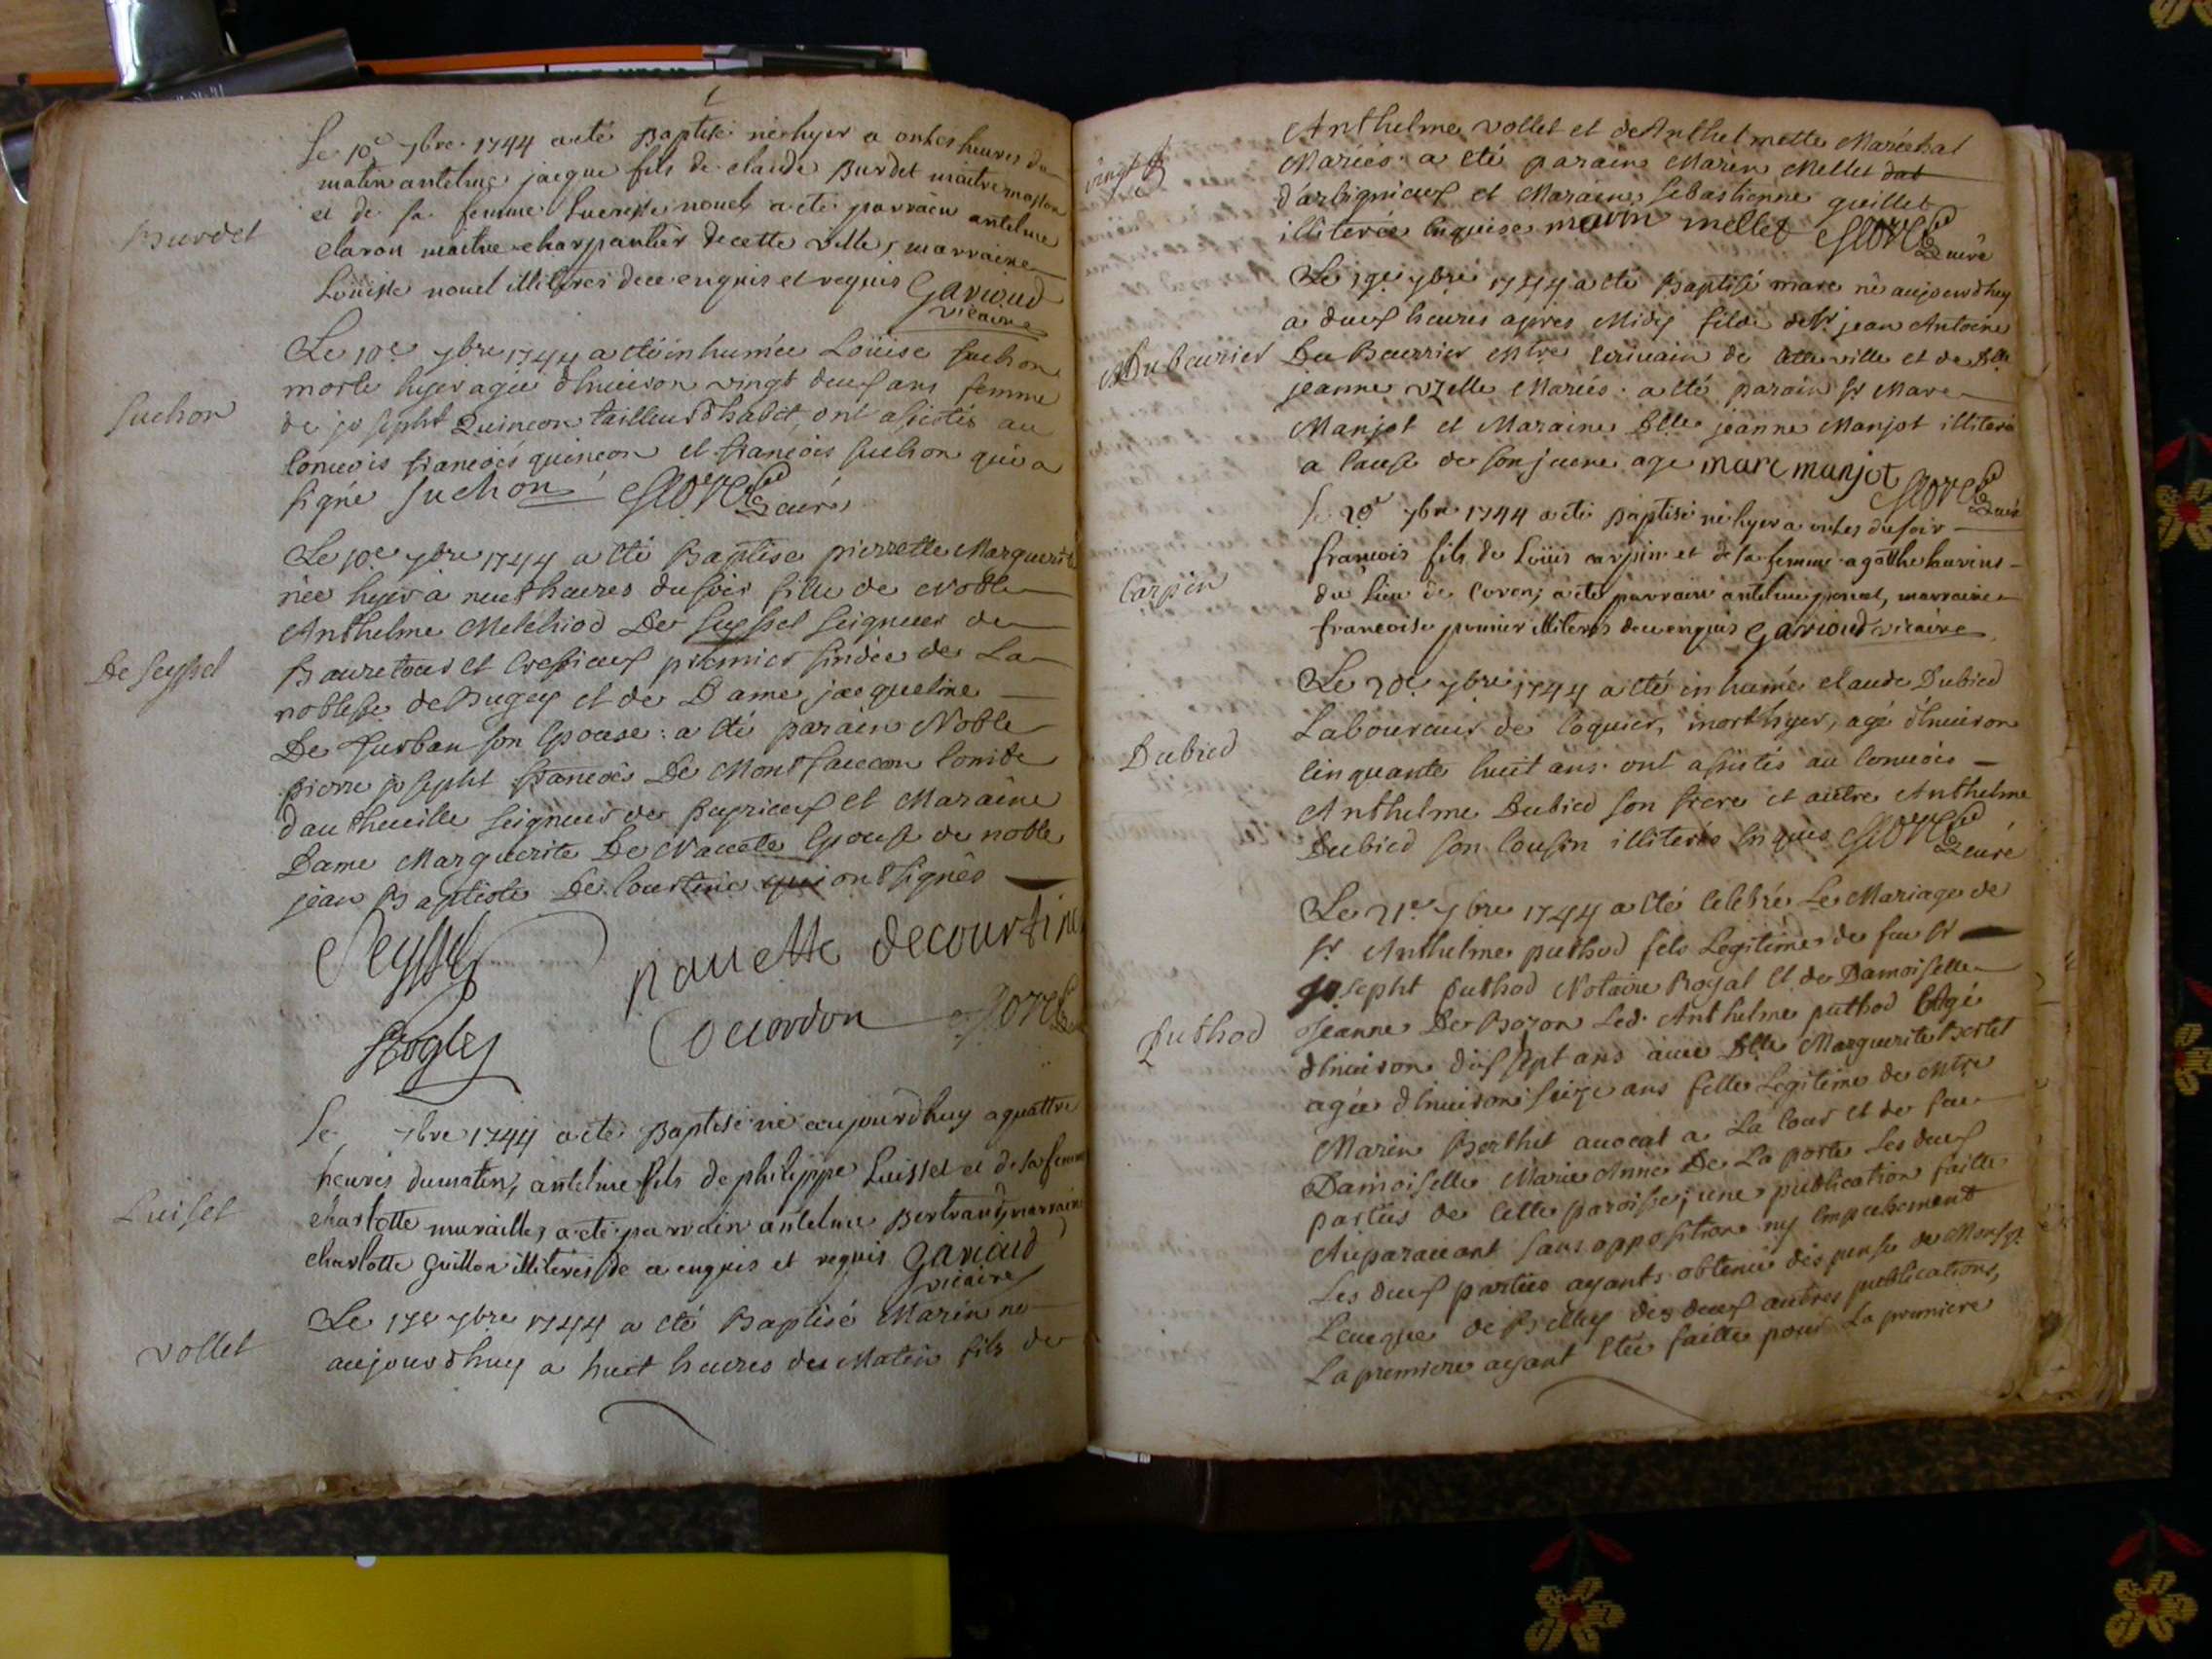 Burdet
Le 10e 7bre 1744 a eté Baptisé né hyer a onhes heures du
matin antelme jacque fils de claude Burdet maitre masson
et de sa femme Lucresse nouel a eté parrain antelme
claron maitre charpantier de cette ville, marraine
Loüise nouel illiteres de ce enquis et requis Garioud
vicaire
Suchon
Le 10e 7bre 1744 a eté inhumée Loüise Suchon
morte hyer agée d'hnuiron vingt deuf ans femme
de joseph Quincon tailleur d'habit, ont assistés au
Conuois francois quincon et francois Suchon qui a
signé Suchon curé
De Seyssel
Le 10e 7bre 1744 a eté Baptisé pierrette Marguerite
née hyer à neuf heures du soir fille de Noble
Anthelme Melchiod De Seyssel Seigneur de
Bauretour et Cressieuf premier sindic de La
noblesse de Bugey et de Dame jacqueline
De Surban son Epouse : a eté parain Noble
pierre joseph francois De Montfaucon Comte
dautheuille seigneur de peyrieuf et Maraine
Dame Marguerite De Nauette Epouse de noble
jean Baptiste De Courtine qui ont signés
Seyssel
nauette decourtine
Rogles
Cocordon
Luiset
Le 7bre 1744 a eté Baptisé né aujourdhuy a quattre
heures du matin, antelme fils de philippe Luisset et de sa femme
charlotte murailles, a eté parrain antelme Bertrand, marraine
charlotte Guillon illiteres de ce enquis et requis Garioud
vicaire
vollet
Le 17e 7bre 1744 a eté Baptisé Marin né
aujourdhuy a huit heures du Matin fils de
vingt
Anthelme vollet et de Anthelmette Maréchal
Mariés : a eté parain Marin Mellet dat
d'arbignieuf et Maraine Sebastienne guillet
illiterée Enquise marin mellet curé
Dubeurier
Le 19e 7bre 1744 a eté Baptisé marc né aujourdhuy
a deuf heures apres Midy fils de Sr jean Antoine
Du Beurrier Mtre Ecriuain de cette ville et de Dlle
jeanne vzelle Mariés : a eté parain Sr Marc
Manjot et Maraine Dlle jeanne Manjot illiterée
a Cause de son jeune age marc manjot
curé
Carpin
Le 20e 7bre 1744 a eté Baptisé né hyer a onhes du soir
francois fils de Loüis carpin et de sa femme agatthe
du lieu de Coron, a eté parrain antelme, marraine
francoise illiteres de ce enquis Garioud vicaire
Dubied
Le 20e 7bre 1744 a eté inhumé claude Dubied
Laboureur de Coquier, mort hyer, agé d'hnuiron
Cinquante huit ans. ont assistés au Conuois
Anthelme Dubied son frere et autre Anthelme
Dubied son Cousin illiterés Enquis curé
Puthod
Le 21e 7bre 1744 a eté Celebré Le Mariage de
Sr Anthelme puthod fils Legitime de feu Sr
joseph puthod Notaire Royal et de Damoiselle
jeanne De Bozon Led. Anthelme puthod Agé
d'hnuiron dissept ans auec Dlle Marguerite Bertet
agée d'hnuiron seize ans fille Legitime de Mtre
Marin Berthet auocat a La Cour et de feue
Damoiselle Marie Anne De La porte Les deuf
parties de Cette paroisse ; une publication faitte
Auparauant sans opposition ny Empechement
Les deuf parties ayants obtenu dispense de Monsgr
L'euesque de Belley des deuf autres publications,
La premiere ayant Etée faitte pour La premiere